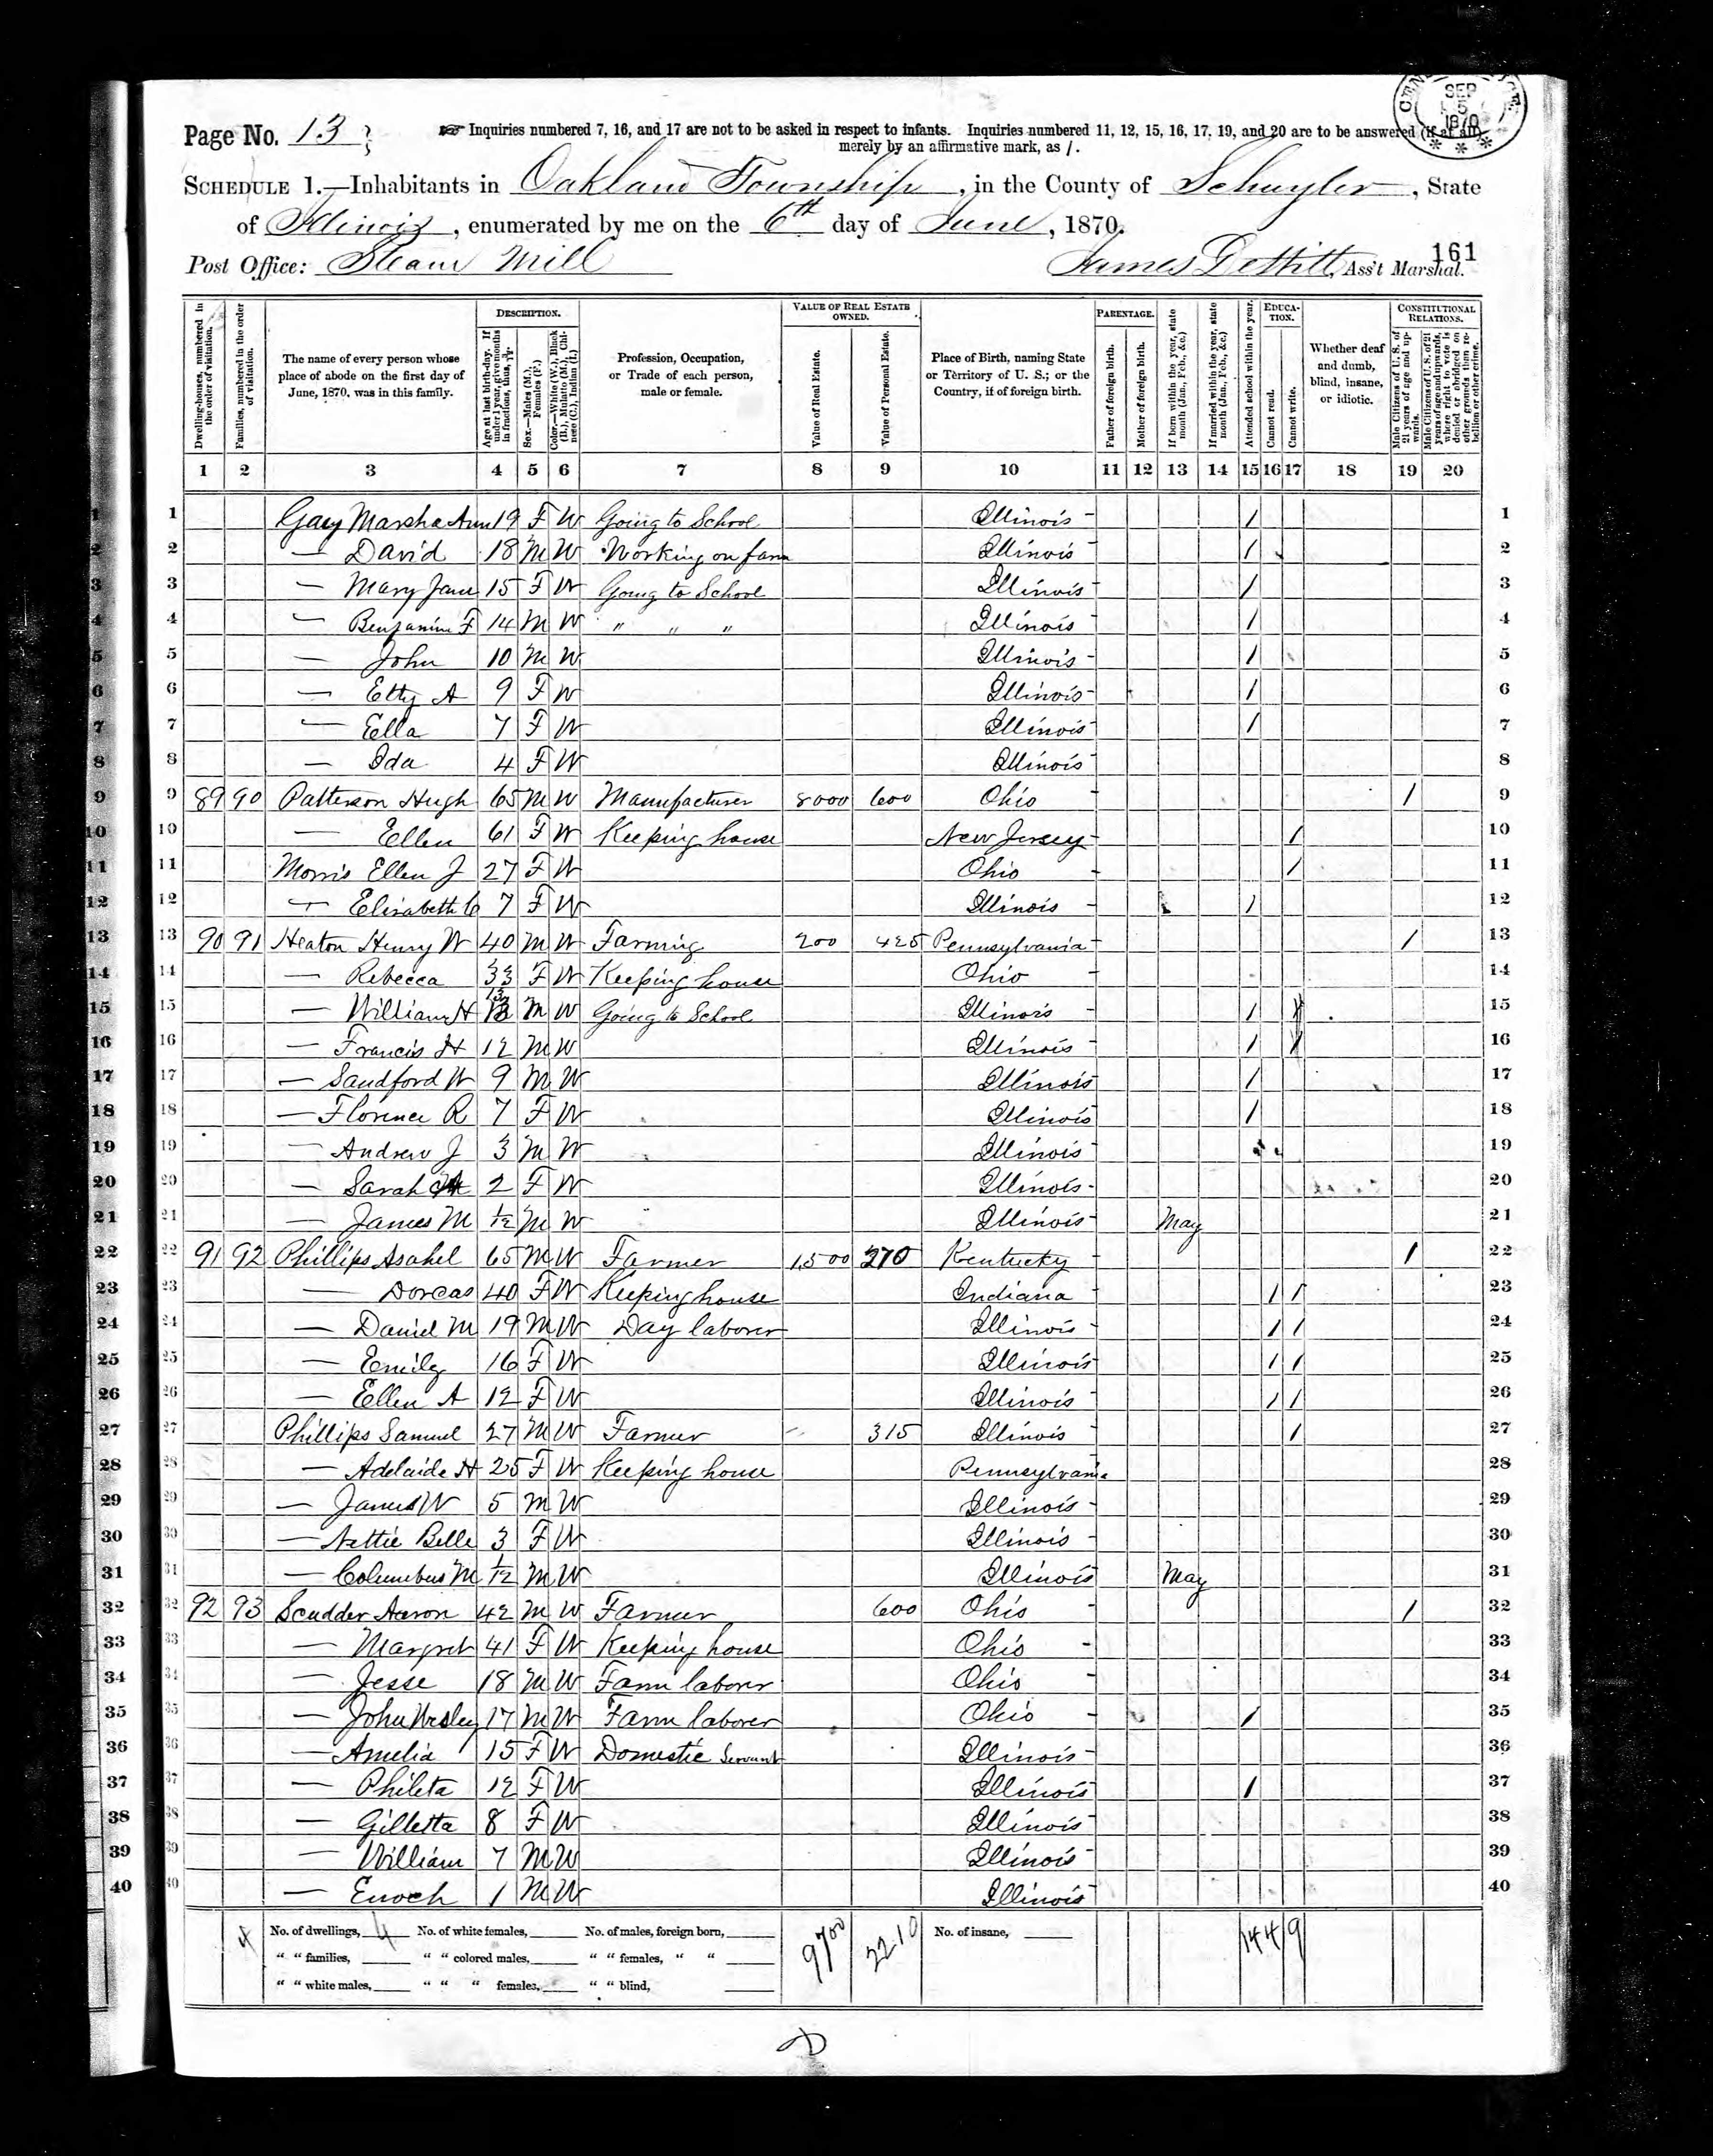 CEN
SEP
5
1870
Page No. 13
Inquiries numbered 7, 16, and 17 are not to be asked in respect to infants. Inquiries numbered 11, 12, 15, 16, 17, 19, and 20 are to be answered (if at all)
merely by an affirmative mark, as /.
SCHEDULE 1.—Inhabitants in Oakland Township, in the County of Schuyler, State
of Illinois, enumerated by me on the 6th day of June, 1870.
161
Post Office: Steam Mill James DeWitt, Ass't Marshal.
Dwelling-houses, numbered in the order of visitation.
Families, numbered in the order of visitation.
The name of every person whose place of abode on the first day of June, 1870, was in this family.
DESCRIPTION.
Age at last birth-day. If under 1 year, give months in fractions, thus, 3/12.
Sex.—Males (M.), Females (F.)
Color.—White (W.), Black (B.), Mulatto (M.), Chinese (C.), Indian (I.)
Profession, Occupation, or Trade of each person, male or female.
VALUE OF REAL ESTATE OWNED.
Value of Real Estate.
Value of Personal Estate.
Place of Birth, naming State or Territory of U. S.; or the Country, if of foreign birth.
PARENTAGE.
Father of foreign birth.
Mother of foreign birth.
If born within the year, state month (Jan., Feb., &c.)
If married within the year, state month (Jan., Feb., &c.)
Attended school within the year.
EDUCATION.
Cannot read.
Cannot write.
Whether deaf and dumb, blind, insane, or idiotic.
CONSTITUTIONAL RELATIONS.
Male Citizens of U. S. of 21 years of age and upwards.
Male Citizens of U. S. of 21 years of age and upwards, where right to vote is denied or abridged on other grounds than rebellion or other crime.
1 2 3 4 5 6 7 8 9 10 11 12 13 14 15 16 17 18 19 20
1 1 Gay Marsha Ann 19 F W Going to School Illinois / 1
2 2 — David 18 M W Working on farm Illinois / 2
3 3 — Mary Jane 15 F W Going to School Illinois / 3
4 4 — Benjamin F 14 M W " " " Illinois / 4
5 5 — John 10 M W Illinois / 5
6 6 — Etty A 9 F W Illinois / 6
7 7 — Ella 7 F W Illinois / 7
8 8 — Ida 4 F W Illinois 8
9 9 89 90 Patterson Hugh 65 M W Manufacturer 8000 600 Ohio / 9
10 10 — Ellen 61 F W Keeping house New Jersey / 10
11 11 Morris Ellen J 27 F W Ohio / 11
12 12 — Elisabeth C 7 F W Illinois / 12
13 13 90 91 Heaton Henry W 40 M W Farming 200 425 Pennsylvania / 13
14 14 — Rebecca 33 F W Keeping house Ohio 14
15 15 — William H 13 M W Going to School Illinois / 15
16 16 — Francis H 12 M W Illinois / 16
17 17 — Sandford W 9 M W Illinois / 17
18 18 — Florence R 7 F W Illinois / 18
19 19 — Andrew J 3 M W Illinois 19
20 20 — Sarah 2 F W Illinois 20
21 21 — James M 1/12 M W Illinois May 21
22 22 91 92 Phillips Asahel 65 M W Farmer 1500 270 Kentucky / 22
23 23 — Dorcas 40 F W Keeping house Indiana / / 23
24 24 — Daniel M 19 M W Day laborer Illinois / / 24
25 25 — Emily 16 F W Illinois / / 25
26 26 — Ellen A 12 F W Illinois / / 26
27 27 Phillips Samuel 27 M W Farmer — 315 Illinois / 27
28 28 — Adelaide H 25 F W Keeping house Pennsylvania 28
29 29 — James W 5 M W Illinois 29
30 30 — Nettie Belle 3 F W Illinois 30
31 31 — Columbus M 1/12 M W Illinois May 31
32 32 92 93 Scudder Aaron 42 M W Farmer 600 Ohio / 32
33 33 — Margret 41 F W Keeping house Ohio 33
34 34 — Jesse 18 M W Farm laborer Ohio 34
35 35 — John Wesley 17 M W Farm laborer Ohio / 35
36 36 — Amelia 15 F W Domestic Servant Illinois 36
37 37 — Phileta 12 F W Illinois / 37
38 38 — Gilletta 8 F W Illinois 38
39 39 — William 7 M W Illinois 39
40 40 — Enoch 1 M W Illinois 40
4 No. of dwellings, 4 No. of white females, No. of males, foreign born, 9700 2210 No. of insane, 14 4 9
" " families, " " colored males, " " females, " "
" " white males, " " " females, " " blind,